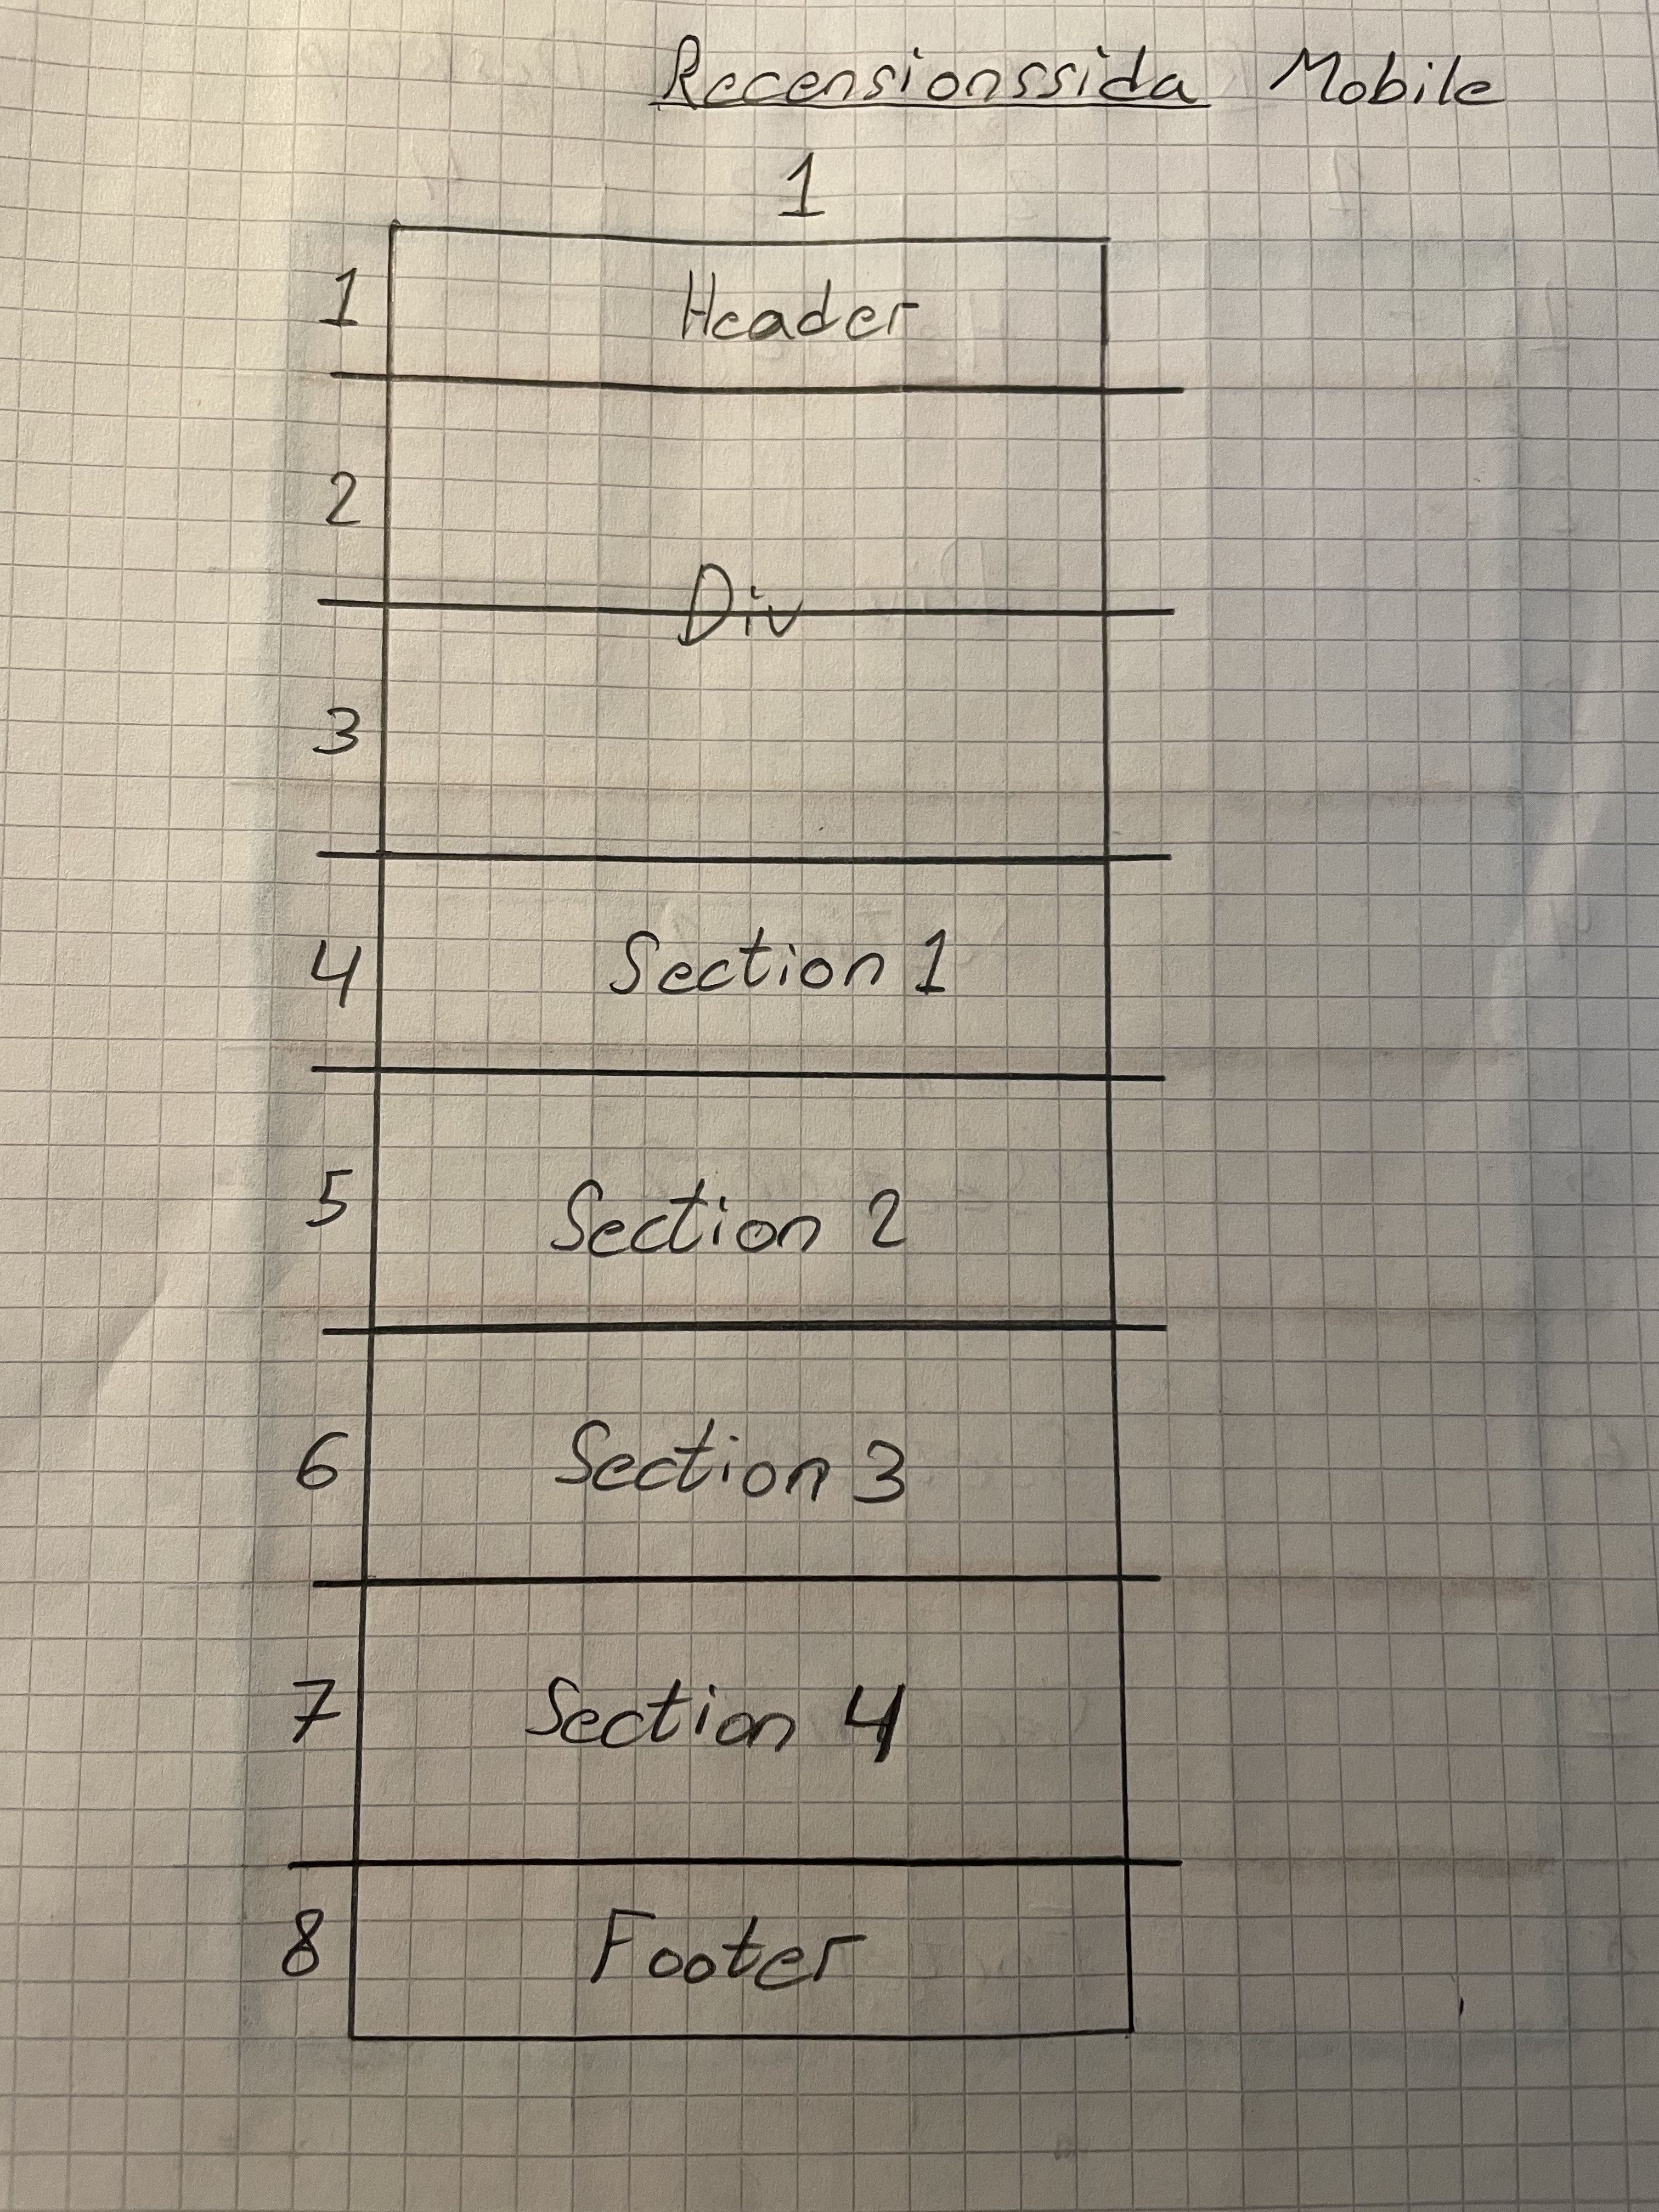 Recensionssida Mobile
1
1 Header
2
Div
3
4 Section 1
5 Section 2
6 Section 3
7 Section 4
8 Footer